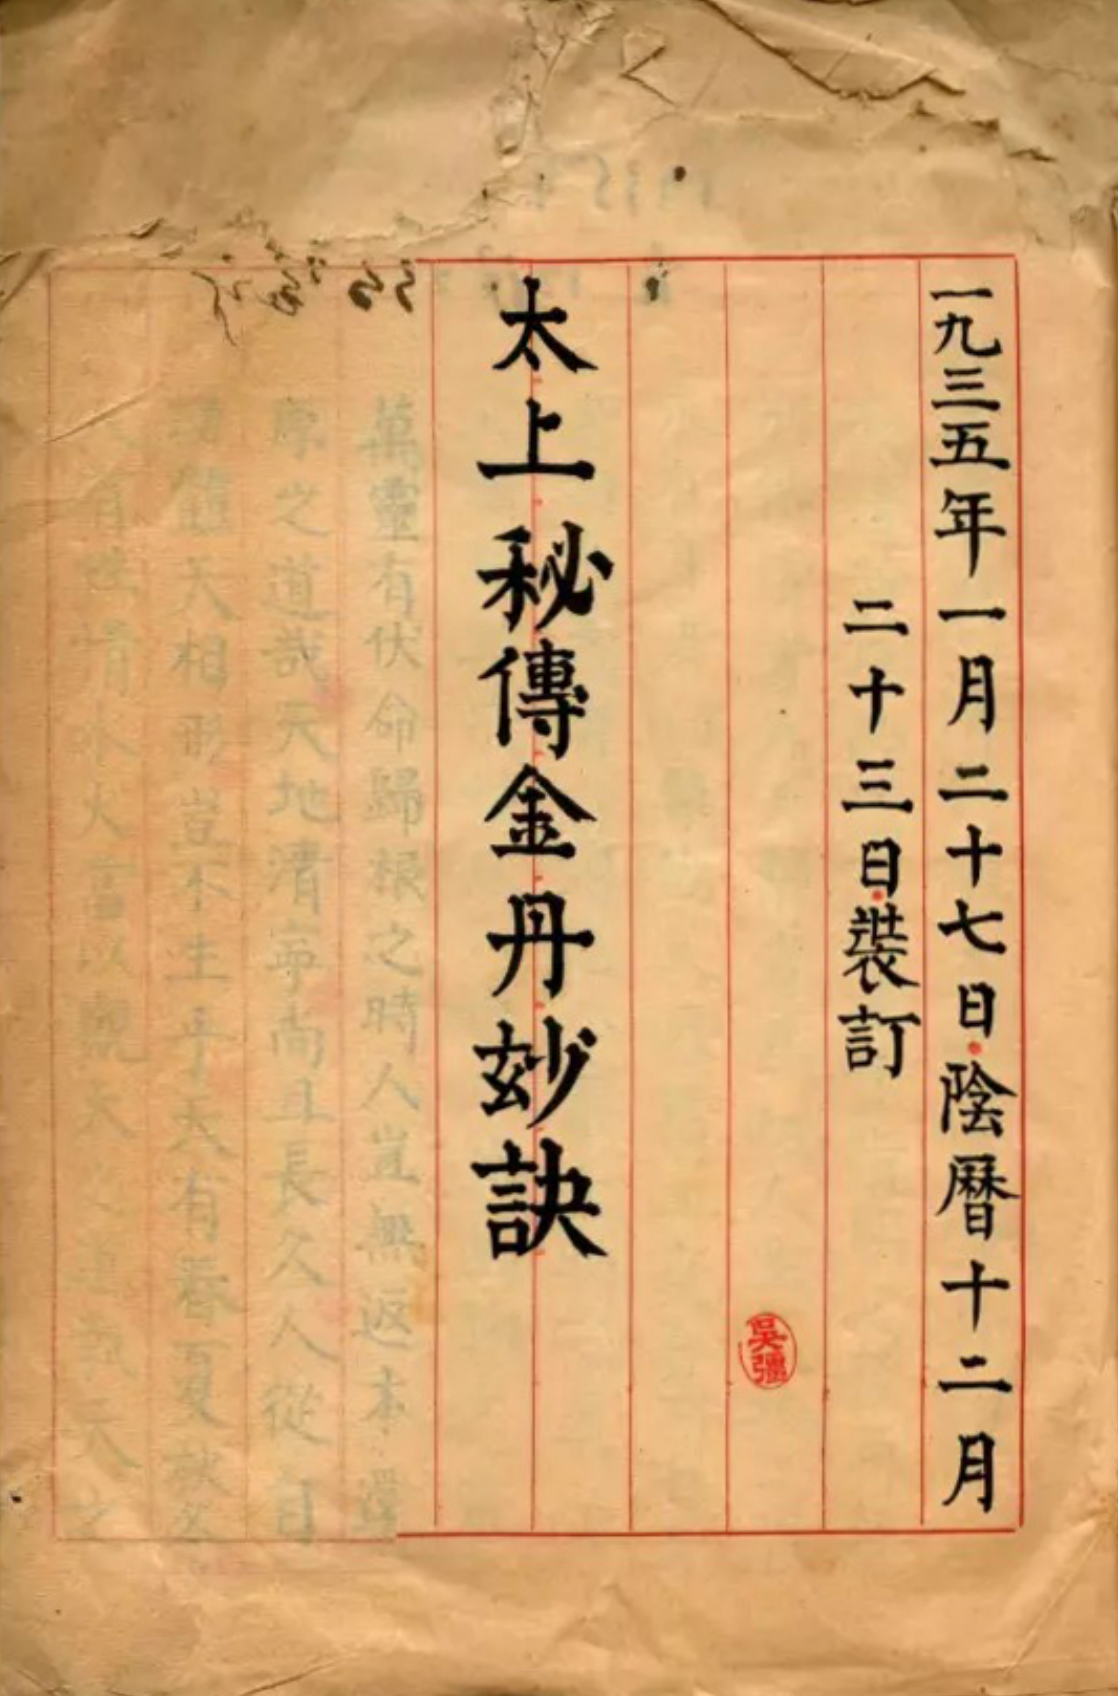 一九三五年一月二十七日.陰曆十二月
二十三日.裝訂
吳彊
太上秘傳金丹玅訣
萬靈有伏命歸根之時人豈無返本還
之道哉天地清寧尚且長久人從
天相形豈不生乎天有春夏秋冬
有性情水火當以觀天之道執天之